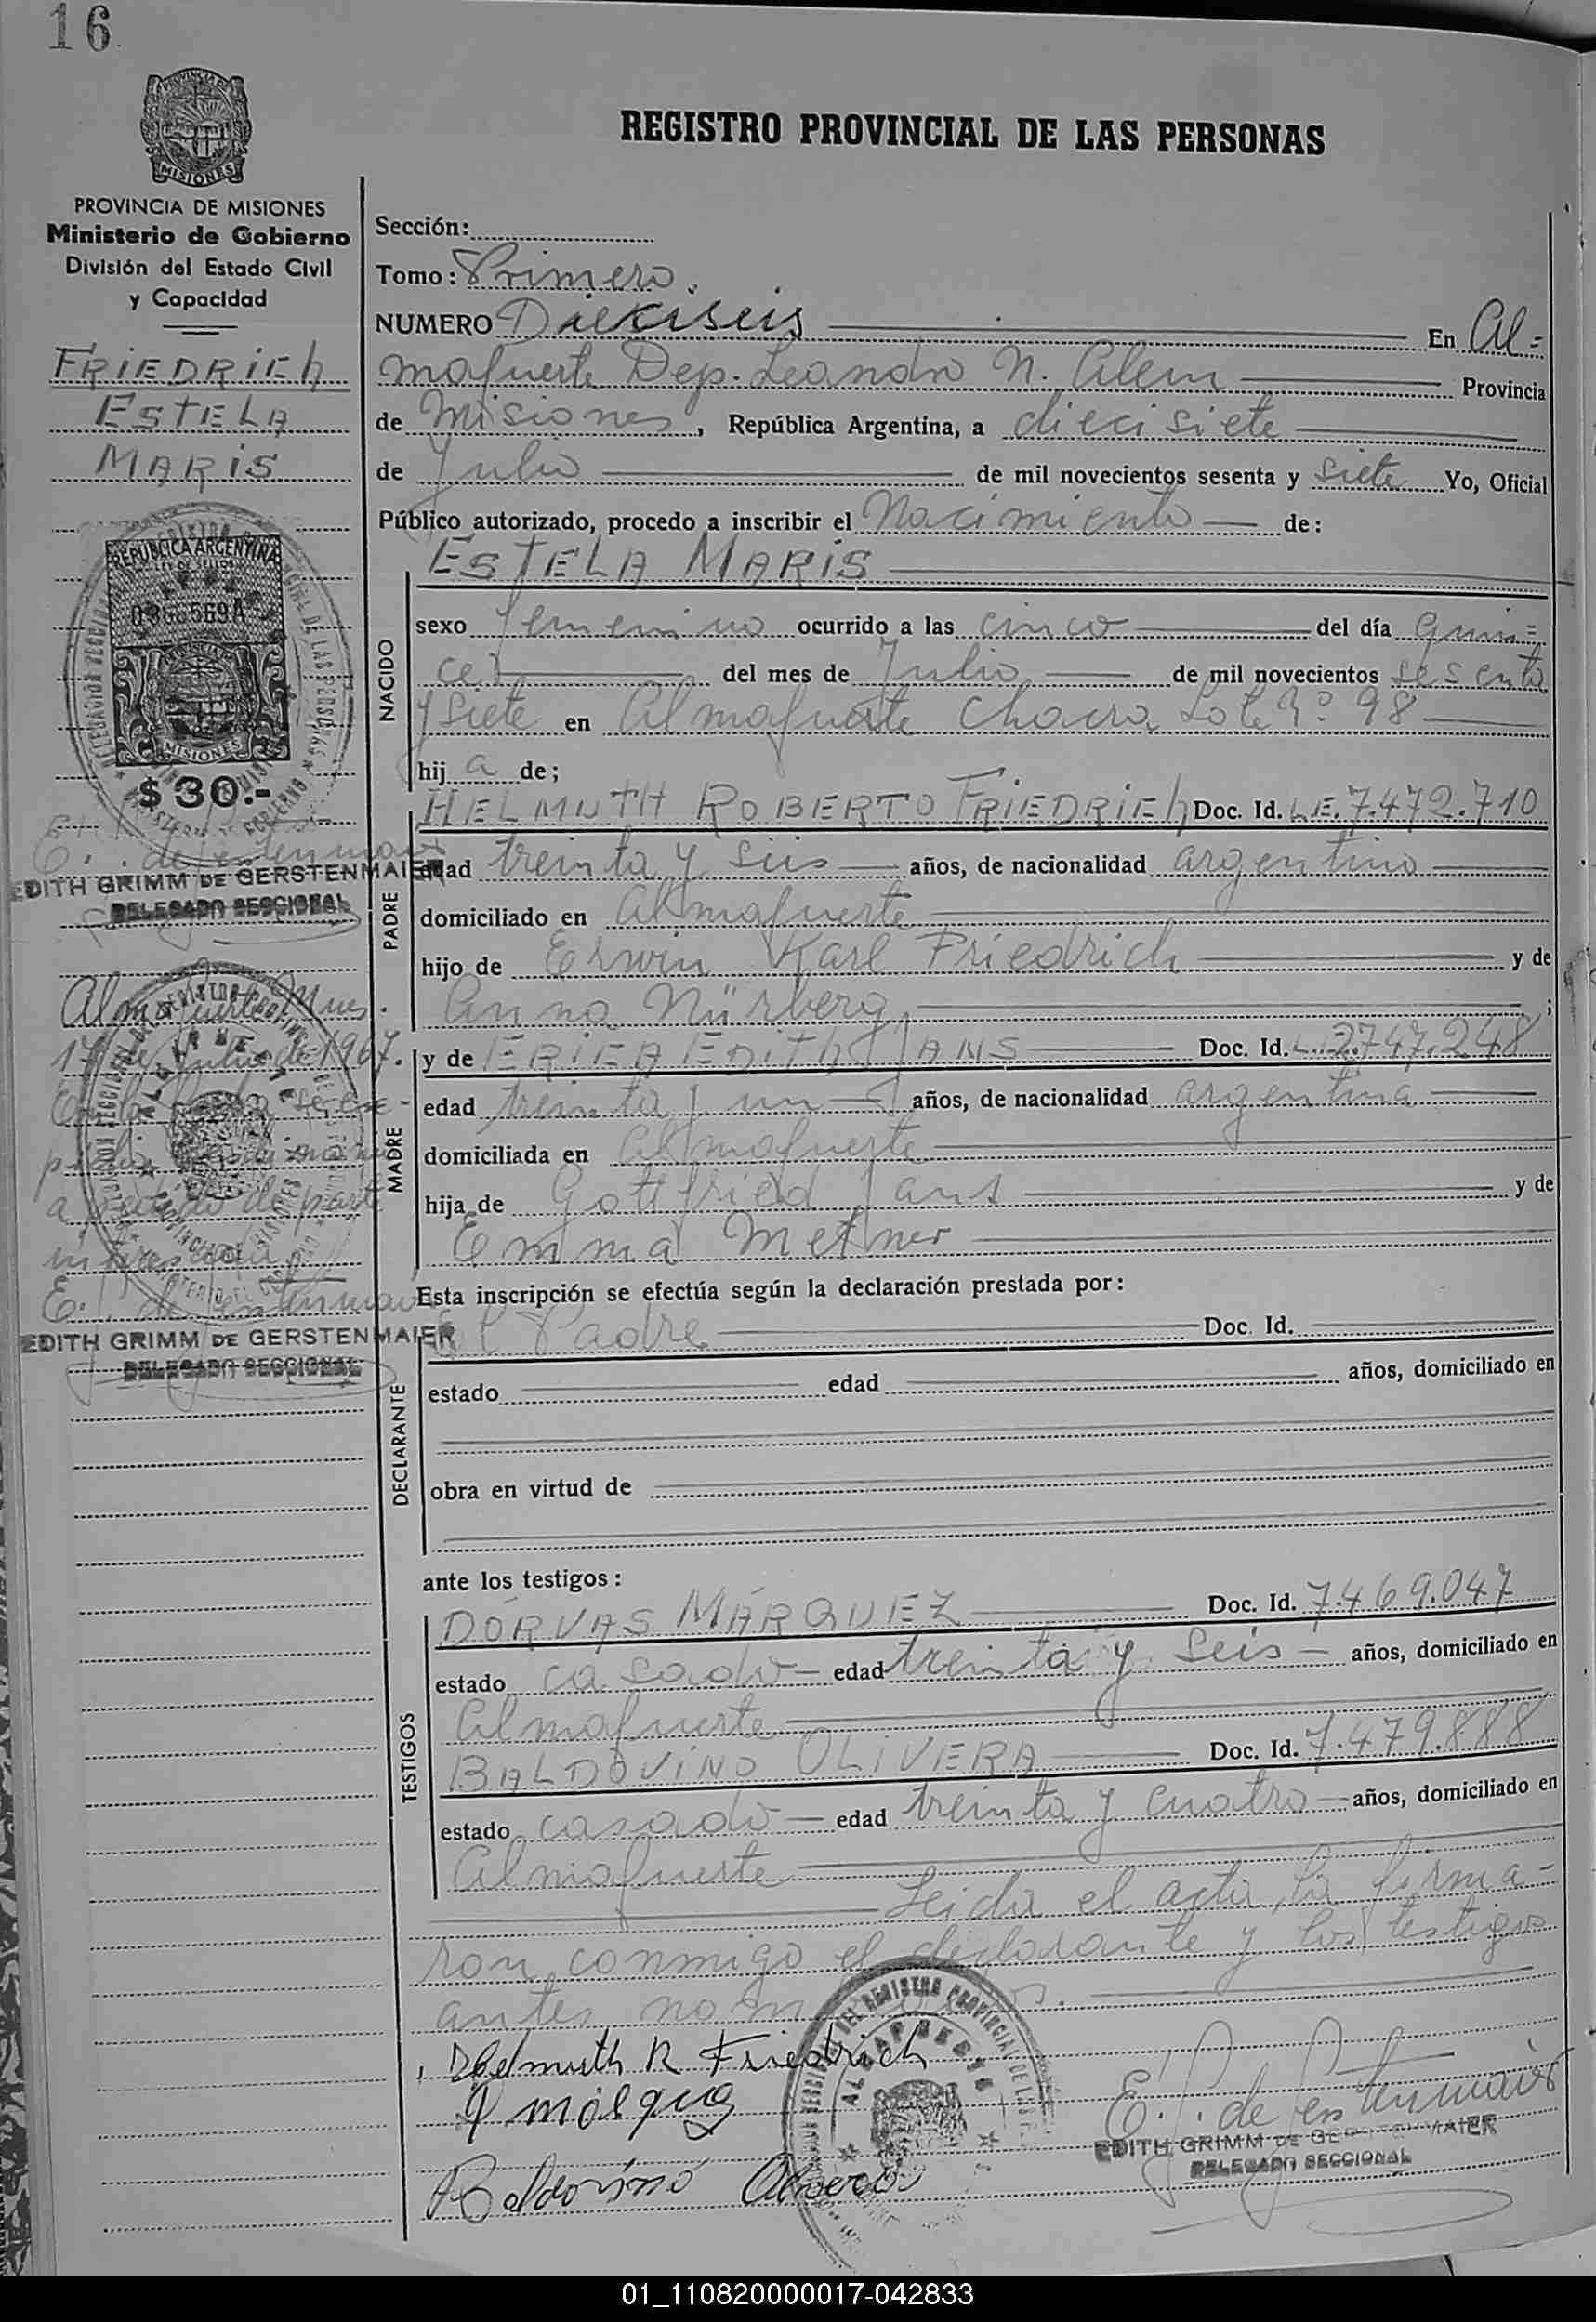 16
MISIONES
REGISTRO PROVINCIAL DE LAS PERSONAS
PROVINCIA DE MISIONES
Ministerio de Gobierno
División del Estado Civil
y Capacidad
FRIEDRICH
ESTELA
MARIS
REPUBLICA ARGENTINA
LEY DE SELLOS
PROVINCIA DE
MISIONES
$ 30.-
EDITH GRIMM DE GERSTENMAIER
DELEGADO SECCIONAL
Almafuerte Mnes.
17 de Julio de 1967.
En la fecha se ex-
pidió
a pedido de parte
interesada.
EDITH GRIMM DE GERSTENMAIER
DELEGADO SECCIONAL
Sección:
Tomo: Primero.
NUMERO Dieciseis En Al=
mafuerte Dep. Leandro N. Alem Provincia
de Misiones, República Argentina, a diecisiete
de Julio de mil novecientos sesenta y siete Yo, Oficial
Público autorizado, procedo a inscribir el Nacimiento de:
ESTELA MARIS
NACIDO
sexo femenino ocurrido a las cinco del día quin=
ce del mes de Julio de mil novecientos sesenta
y siete en Almafuerte Chacra Lote Nº 98
hij a de;
PADRE
HELMUTH ROBERTO FRIEDRICH Doc. Id. L.E. 7.472.710
edad treinta y seis años, de nacionalidad argentino
domiciliado en Almafuerte
hijo de Erwin Karl Friedrich y de
Anna Nürberg ;
MADRE
y de ERICA EDITH JANS Doc. Id. L. 2.747.248
edad treinta y un años, de nacionalidad argentina
domiciliada en Almafuerte
hija de Gottfried Jans y de
Emma Metner
Esta inscripción se efectúa según la declaración prestada por:
DECLARANTE
el Padre Doc. Id.
estado edad años, domiciliado en
obra en virtud de
ante los testigos:
TESTIGOS
DÓRVAS MÁRQUEZ Doc. Id. 7.469.047
estado casado edad treinta y seis años, domiciliado en
Almafuerte
BALDOVINO OLIVERA Doc. Id. 7.479.888
estado casado edad treinta y cuatro años, domiciliado en
Almafuerte
Leida el acta, la firma-
ron conmigo el declarante y los testigos
antes
Helmuth R Friedrich
EDITH GRIMM DE GERSTENMAIER
DELEGADO SECCIONAL
01_110820000017-042833